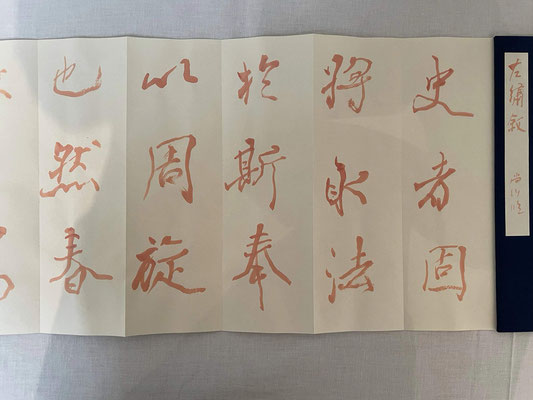 左繡敘
史者固
將取法
於斯奉
以周旋
也然春